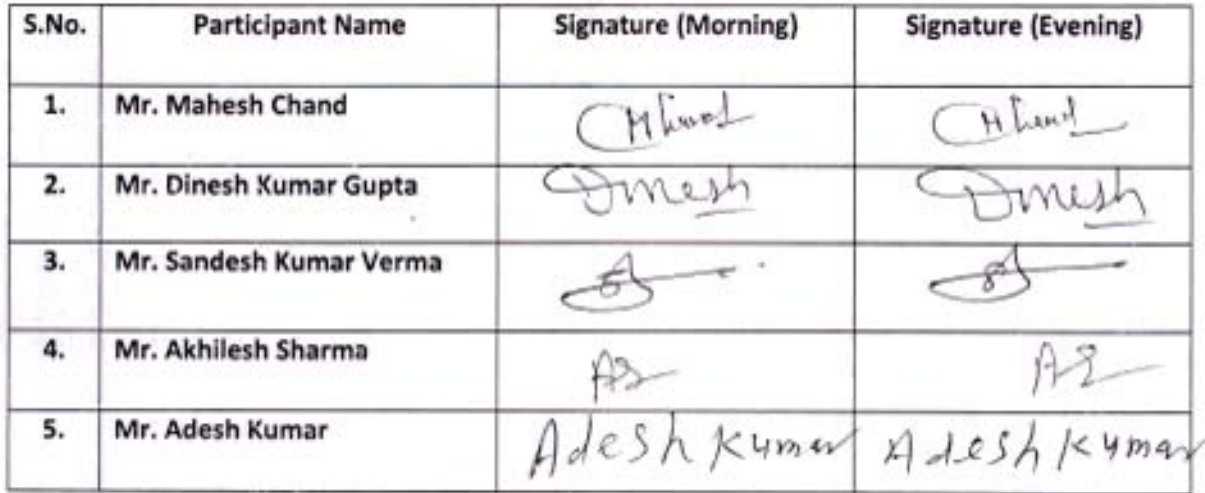 S.No. Participant Name Signature (Morning) Signature (Evening)
1. Mr. Mahesh Chand
2. Mr. Dinesh Kumar Gupta Dinesh Dinesh
3. Mr. Sandesh Kumar Verma
4. Mr. Akhilesh Sharma AS AS
5. Mr. Adesh Kumar Adesh Kumar Adesh Kumar